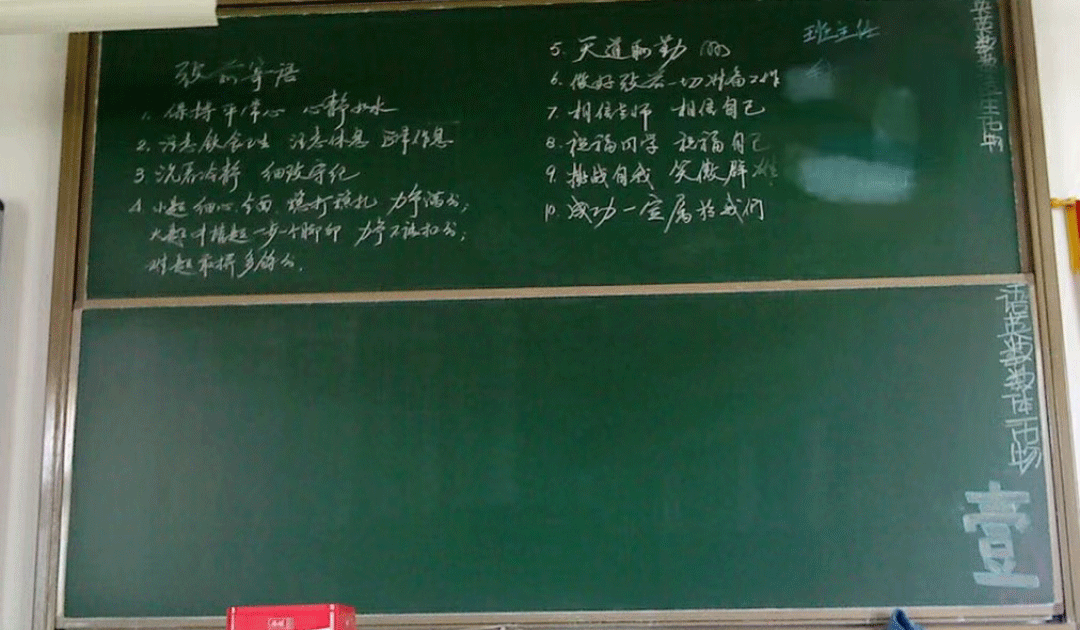 考前寄语
1. 保持平常心 心静如水
2. 注意饮食卫生 注意休息 正常作息
3. 沉着冷静 细致守纪
4. 小题细心、全面 稳打稳扎 力争满分;
大题中档题一步一个脚印 力争不误扣分;
难题求拼多得分.
5. 天道酬勤
6. 做好考前一切准备工作
7. 相信老师 相信自己
8. 祝福同学 祝福自己
9. 挑战自我 笑傲群雄
10. 成功一定属于我们
班主任
英英数 生
语英数数体 物
壹